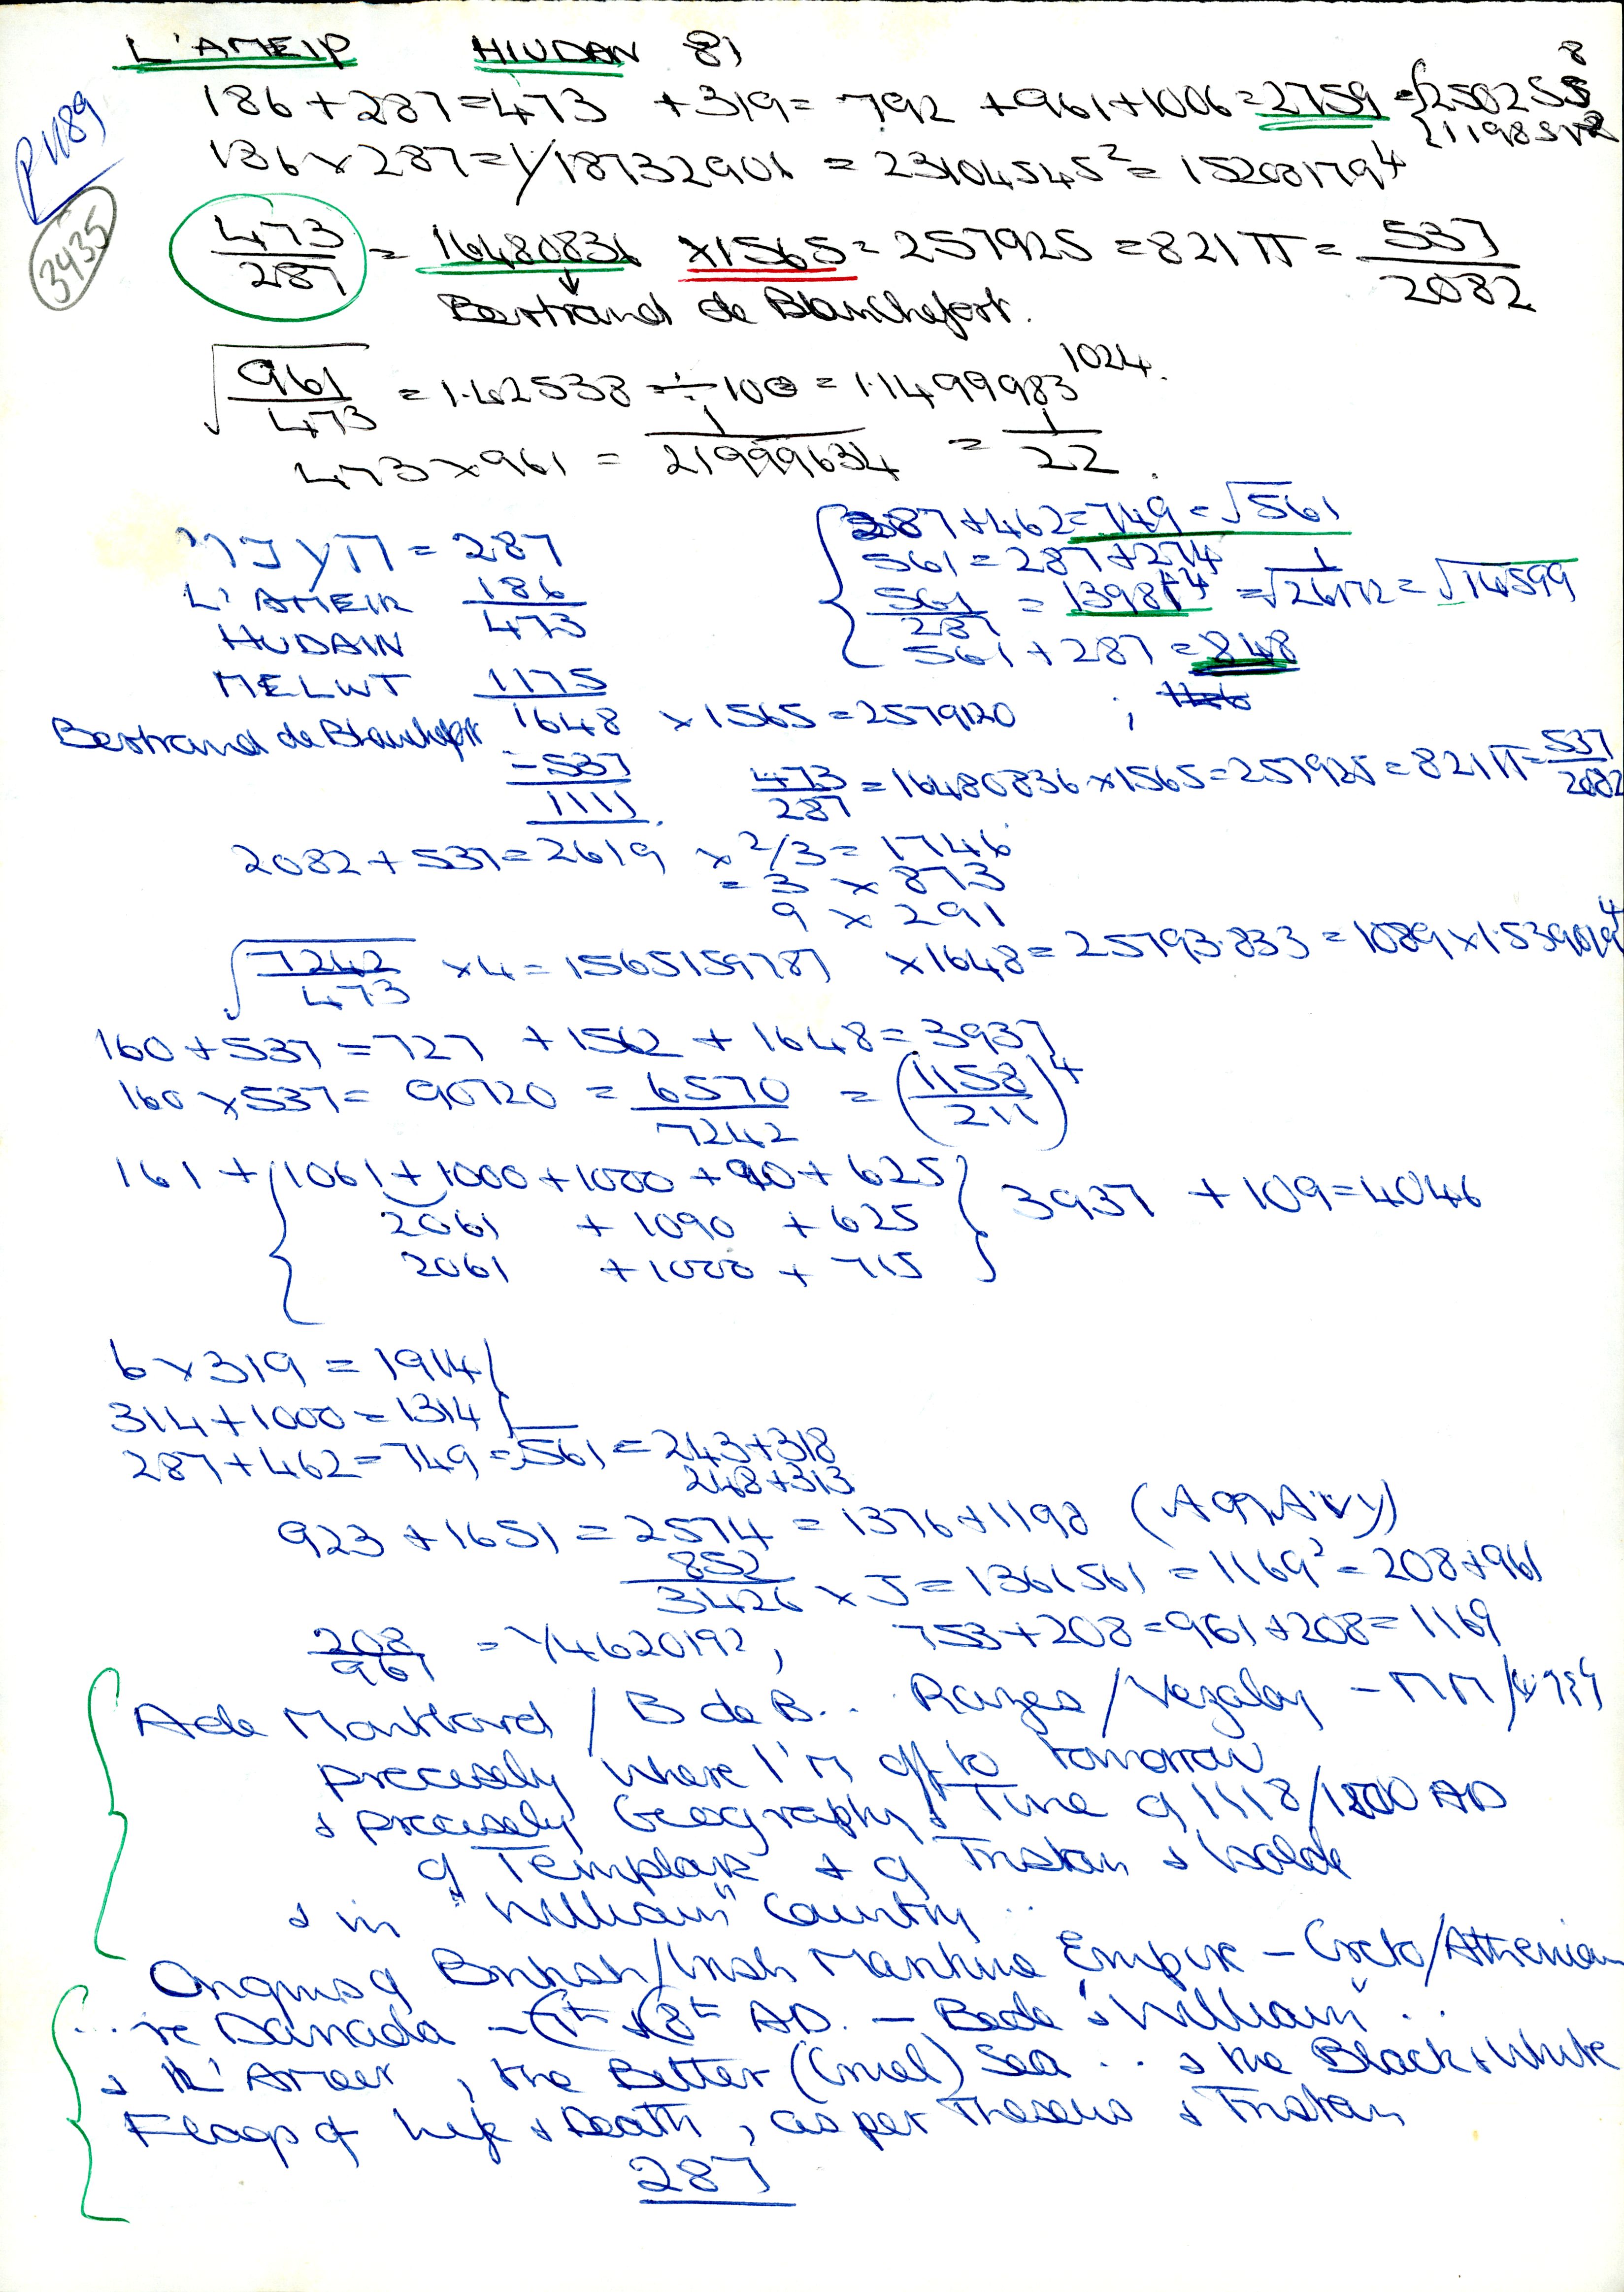 L'AMEIP HIUDAN 81
P1189
3435
186 + 287 = 473 + 319 = 792 + 961 + 1006 = 2759
186 x 287 = 1/18732901 = 23104545² = 15200179⁴
473/287 = 16480836 x 1565 = 257925 = 821 π = 537/2082
Bertrand de Blanchefort.
√961/473 = 1.42538 ÷ 100 = 1.1499983 1024.
473 x 961 = 1/21999634 = 1/22.
= 287
L'AMEIR 186
473
HUDAIN
MELWT 1175
Bertrand de Blanchefort 1648 x 1565 = 2579120 ;
- 537
1111.
287 + 462 = 749 = √561
561 = 287 + 274
561/287 = = √1/26172 = √14599
561 + 287 = 848
473/287 = 16480836 x 1565 = 257925 = 821 π = 537/2082
2082 + 537 = 2619 x 2/3 = 1746
= 3 x 873
9 x 291
√7242/473 x 4 = 1565159787 x 1648 = 25793.833 = 1089 x 1.539019⁴
160 + 537 = 727 + 1562 + 1648 = 3937
160 x 537 = 90720 = 6570/7242 = (1158/211)⁴
161 + { 1061 + 1000 + 1000 + 90 + 625 } 3937 + 109 = 4046
2061 + 1090 + 625
2061 + 1000 + 715
6 x 319 = 1914
314 + 1000 = 1314
287 + 462 = 749 = 561 = 243 + 318
248 + 313
923 + 1651 = 2574 = 1376 + 1198
852
3426 x J = 1366561 = 1169² = 208 + 961
208/961 = 1/4620192, 753 + 208 = 961 + 208 = 1169
A de Montbard / B de B.. Razes / Vezalay - MM /
precisely where I'm off to tomorrow
& precisely Geography & Time of 1118/1200 AD
of Templars + of Tristan & Isolde
& in "William" Country..
Origins of British/Irish Maritime Empire - Creto/Athenian
... re Danada - 7th & 8th AD. - Bede & "William"..
& L'Ameir, the Bitter (Cruel) Sea .. & the Black & White
Flags of Life & Death, as per Theseus & Tristan
287